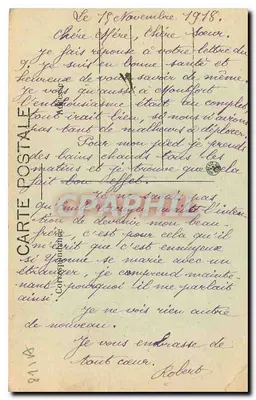 Le 15 Novembre 1918.
Chère Mère, Chère Sœur.
je fais réponse à votre lettre du
9 je suis en bonne santé et
heureux de vous savoir de même.
Je vois qu'aussi à Montfort
l'enthousiasme était au complet
tout irait bien, si nous n'avions
pas tant de malheurs à déplorer.
Pour mon pied je prends
des bains chauds tous les
matins et je trouve que cela
fait bon effet.
pas
l'inten-
tion de devenir mon beau-
frère, c'est pour cela qu'il
m'écrit que c'est ennuyeux
si Yvonne se marie avec un
étranger, je comprend mainte-
nant pourquoi il me parlait
ainsi.
je ne vois rien autre
de nouveau.
Je vous embrasse de
tout cœur.
Robert
CARTE POSTALE
Correspondance
Adresse
CPAPHIL